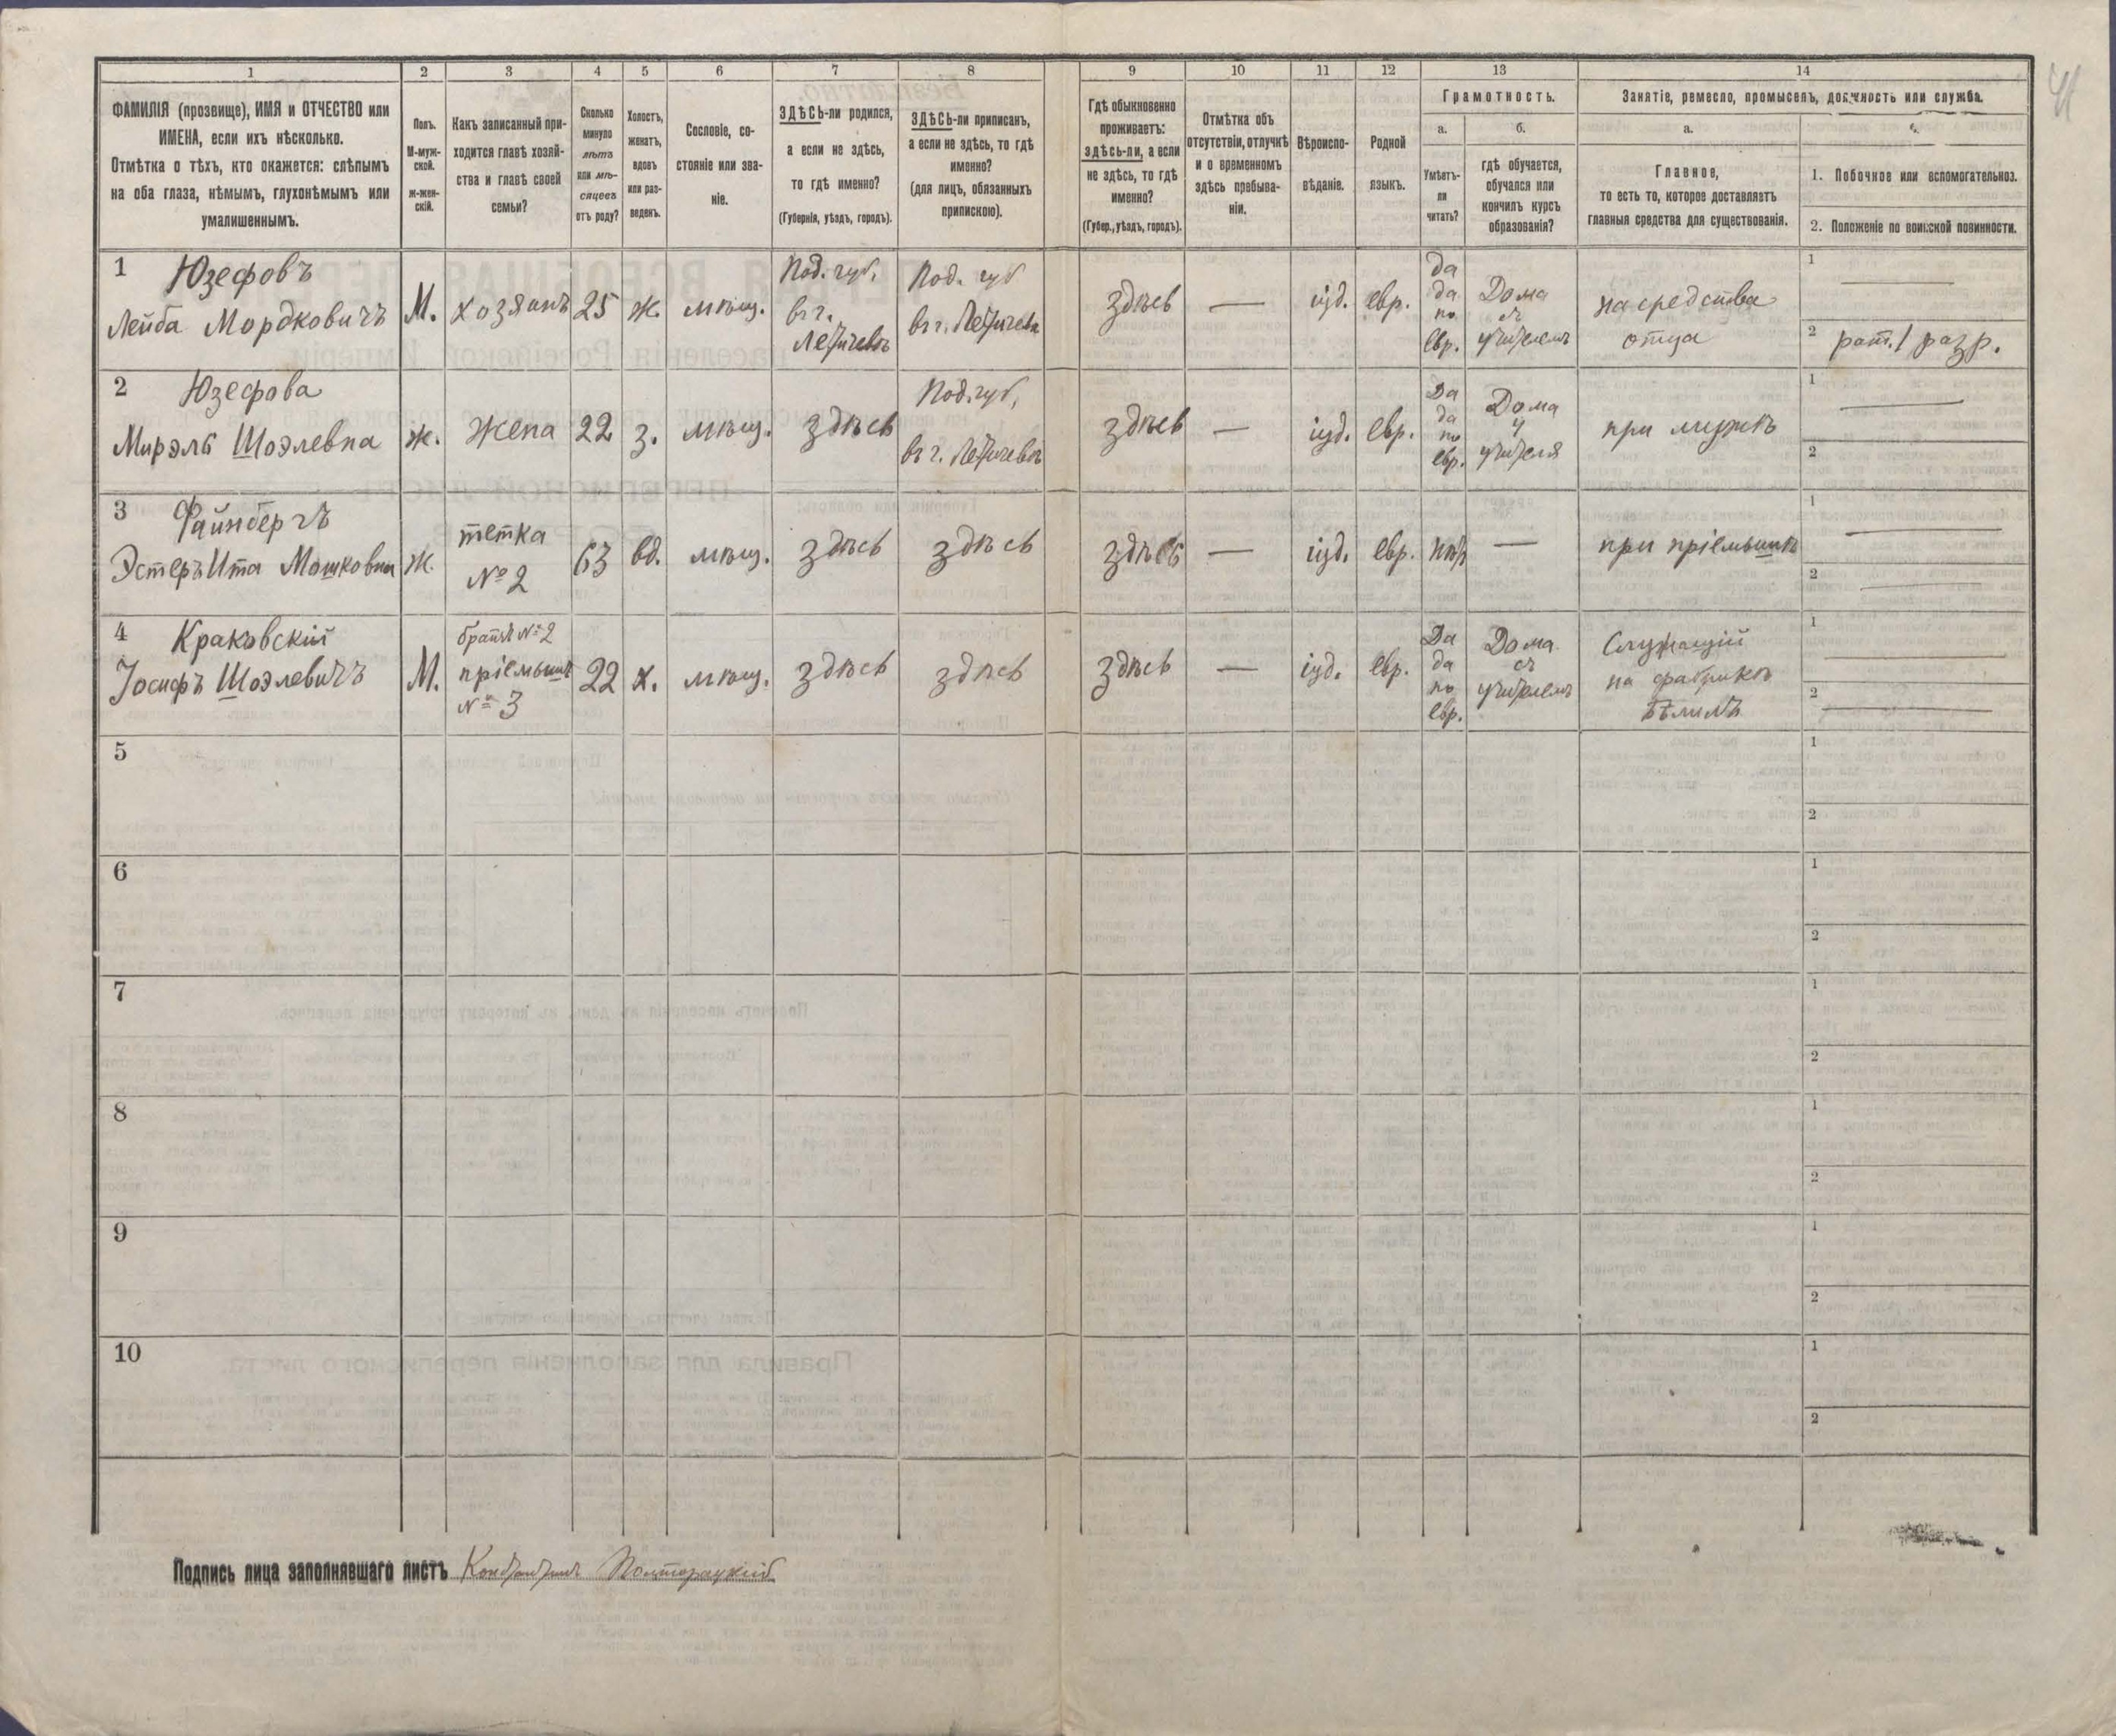 1 2 3 4 5 6 7 8 9 10 11 12 13 14
ФАМИЛІЯ (прозвище), ИМЯ и ОТЧЕСТВО или
ИМЕНА, если ихъ нѣсколько.
Отмѣтка о тѣхъ, кто окажется: слѣпымъ
на оба глаза, нѣмымъ, глухонѣмымъ или
умалишеннымъ.
Полъ.
М-муж-
ской.
ж-жен-
скій.
Какъ записанный при-
ходится главѣ хозяй-
ства и главѣ своей
семьи?
Сколько
минуло
лѣтъ
или мѣ-
сяцевъ
отъ роду?
Холостъ,
женатъ,
вдовъ
или раз-
веденъ.
Сословіе, со-
стояніе или зва-
ніе.
ЗДѢСЬ-ли родился,
а если не здѣсь,
то гдѣ именно?
(Губернія, уѣздъ, городъ).
ЗДѢСЬ-ли приписанъ,
а если не здѣсь, то гдѣ
именно?
(для лицъ, обязанныхъ
припискою).
Гдѣ обыкновенно
проживаетъ:
здѣсь-ли, а если
не здѣсь, то гдѣ
именно?
(Губер., уѣздъ, городъ).
Отмѣтка объ
отсутствіи, отлучкѣ
и о временномъ
здѣсь пребыва-
ніи.
Вѣроиспо-
вѣданіе.
Родной
языкъ.
Грамотность.
а.
Умѣетъ-
ли
читать?
б.
гдѣ обучается,
обучался или
кончилъ курсъ
образованія?
Занятіе, ремесло, промыселъ, должность или служба.
а.
Главное,
то есть то, которое доставляетъ
главныя средства для существованія.
1. Побочное или вспомогательное.
2. Положеніе по воинской повинности.
1 Юзефовъ
Лейба Мордковичъ
М.
хозяинъ
25
ж.
мѣщ.
Под. губ.
въ г.
Летичевѣ
Под. губ
въ г. Летичевѣ
здѣсь
—
іуд.
евр.
да
да
по
евр.
Дома
съ
учителемъ
на средства
отца
1
2 рат. 1 разр.
2 Юзефова
Мирэль Шоэлевна
ж.
жена
22
з.
мѣщ.
здѣсь
Под. губ.
въ г. Летичевѣ
здѣсь
—
іуд.
евр.
Да
да
по
евр.
Дома
у
учителя
при мужѣ
1
2
3 Файнбергъ
Эстеръ Ита Мошковна
ж.
тетка
№ 2
63
вд.
мѣщ.
здѣсь
здѣсь
здѣсь
—
іуд.
евр.
нѣтъ
—
при пріемышѣ
1
2
4 Краковскій
Іосифъ Шоэлевичъ
М.
братъ № 2
пріемышъ
№ 3
22
х.
мѣщ.
здѣсь
здѣсь
здѣсь
—
іуд.
евр.
Да
да
по
евр.
Дома
съ
учителемъ
Служащій
на фабрикѣ
1
2
5
1
2
6
1
2
7
1
2
8
1
2
9
1
2
10
1
2
Подпись лица заполнявшаго листъ Константинъ Полторацкій